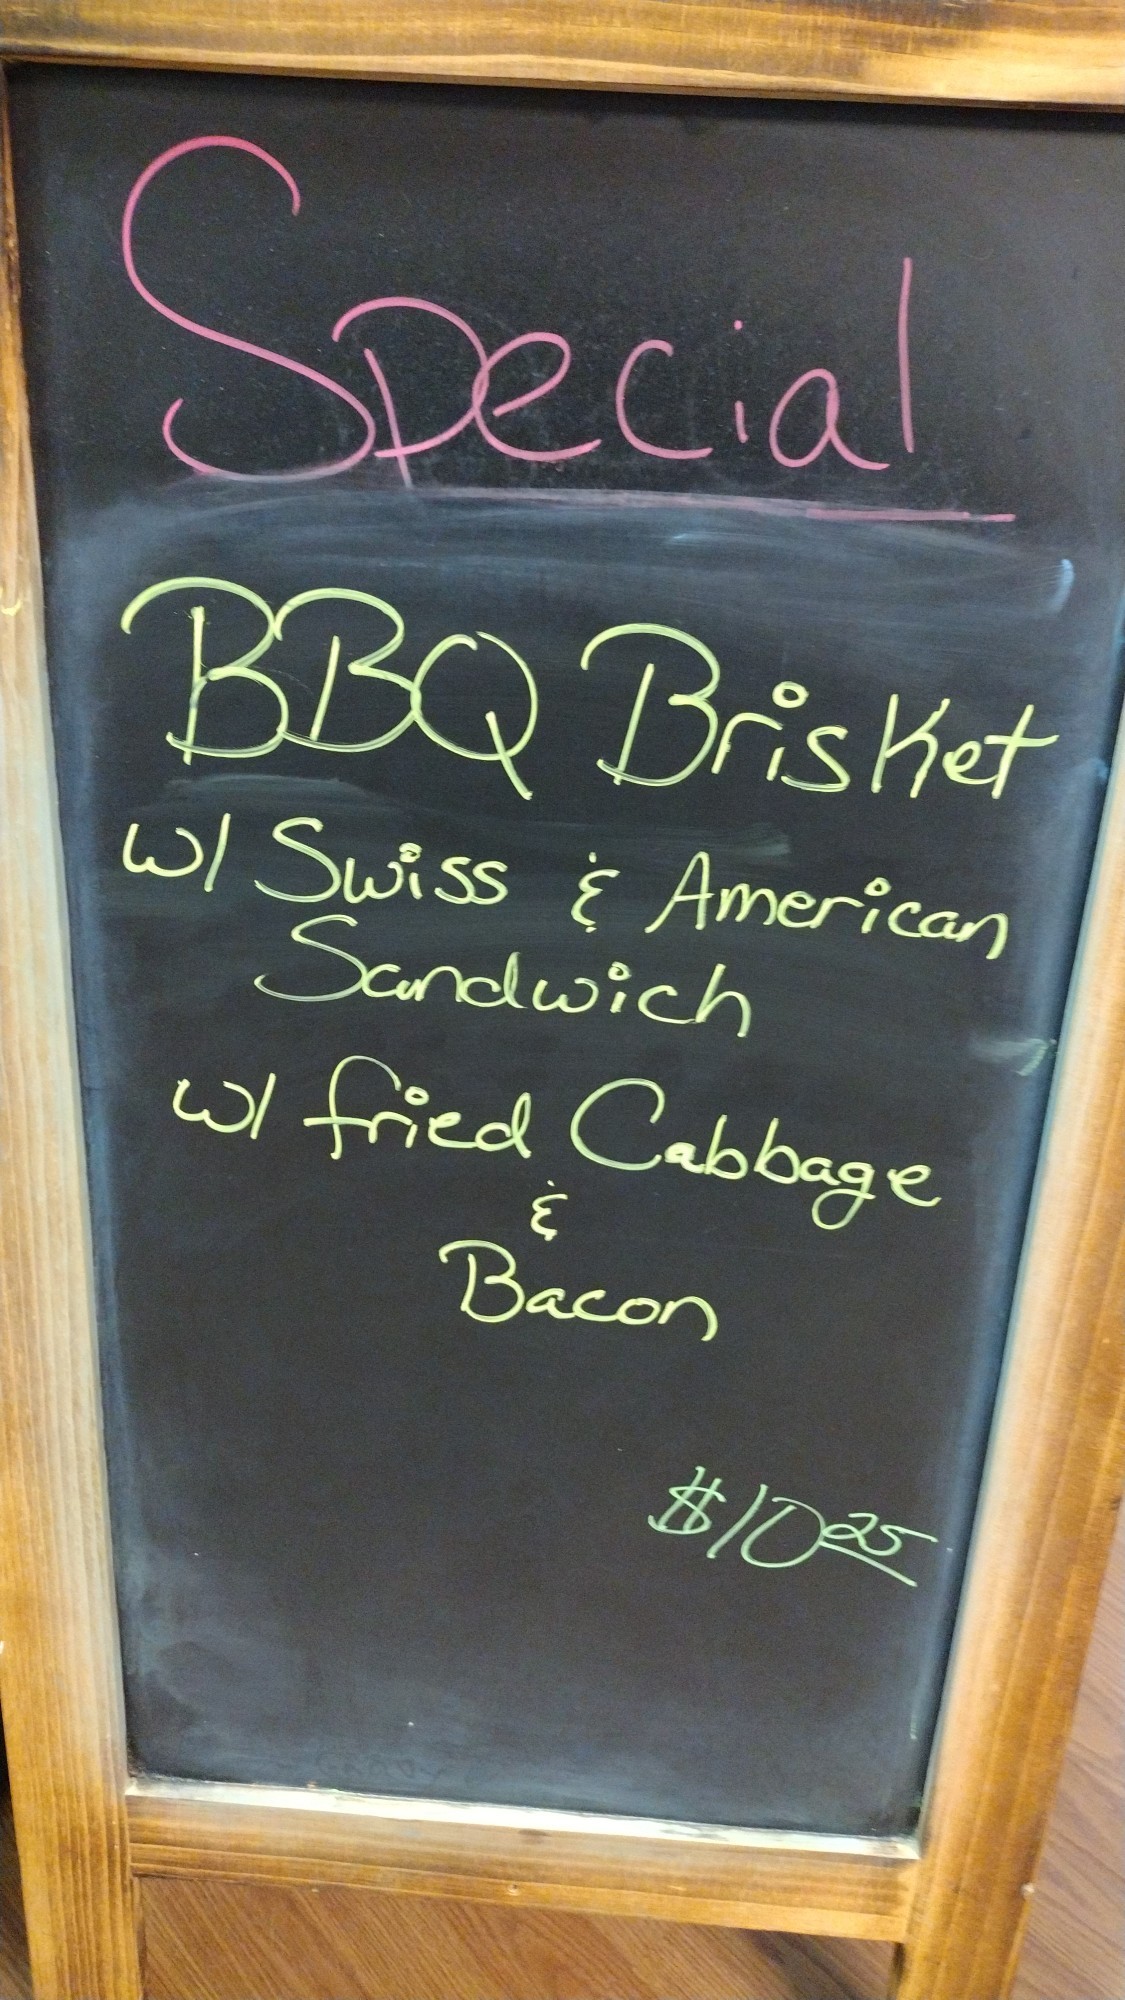 Special
BBQ Brisket
w/ Swiss & American
Sandwich
w/ fried Cabbage
&
Bacon
$10 25